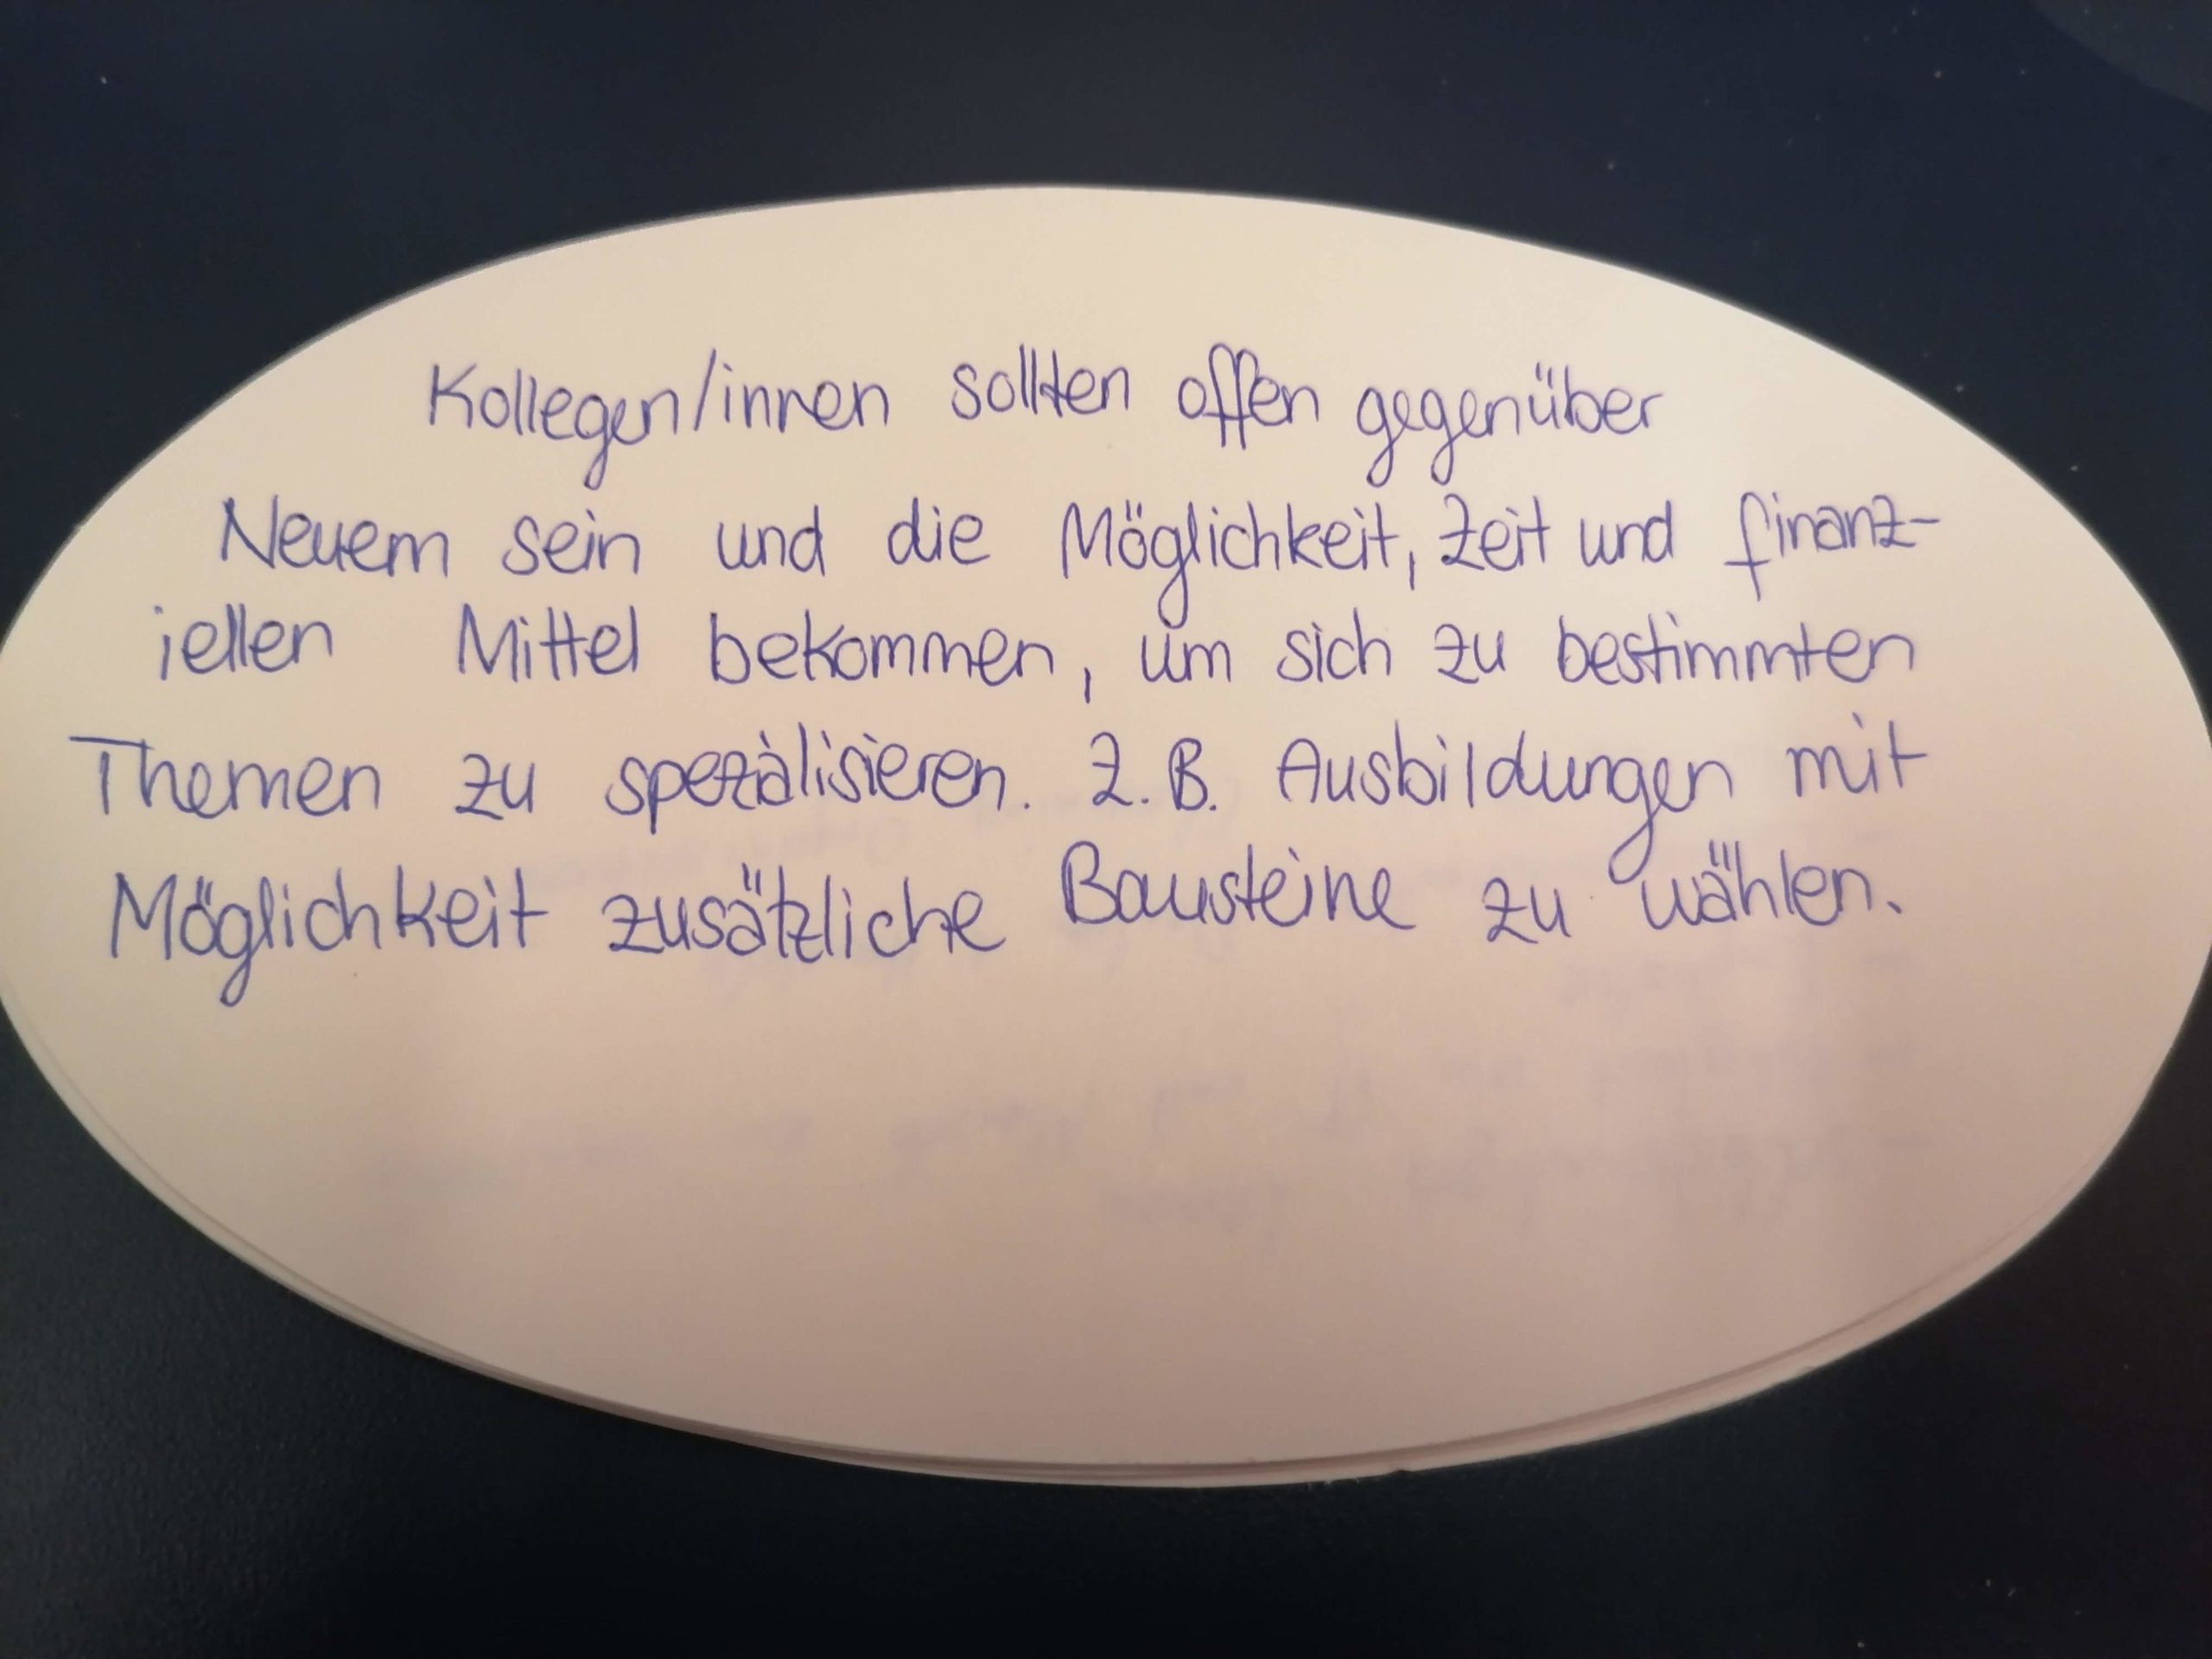 Kollegen/innen sollten offen gegenüber
Neuem sein und die Möglichkeit, Zeit und finanz-
iellen Mittel bekommen, um sich zu bestimmten
Themen zu spezialisieren. Z.B. Ausbildungen mit
Möglichkeit zusätzliche Bausteine zu wählen.